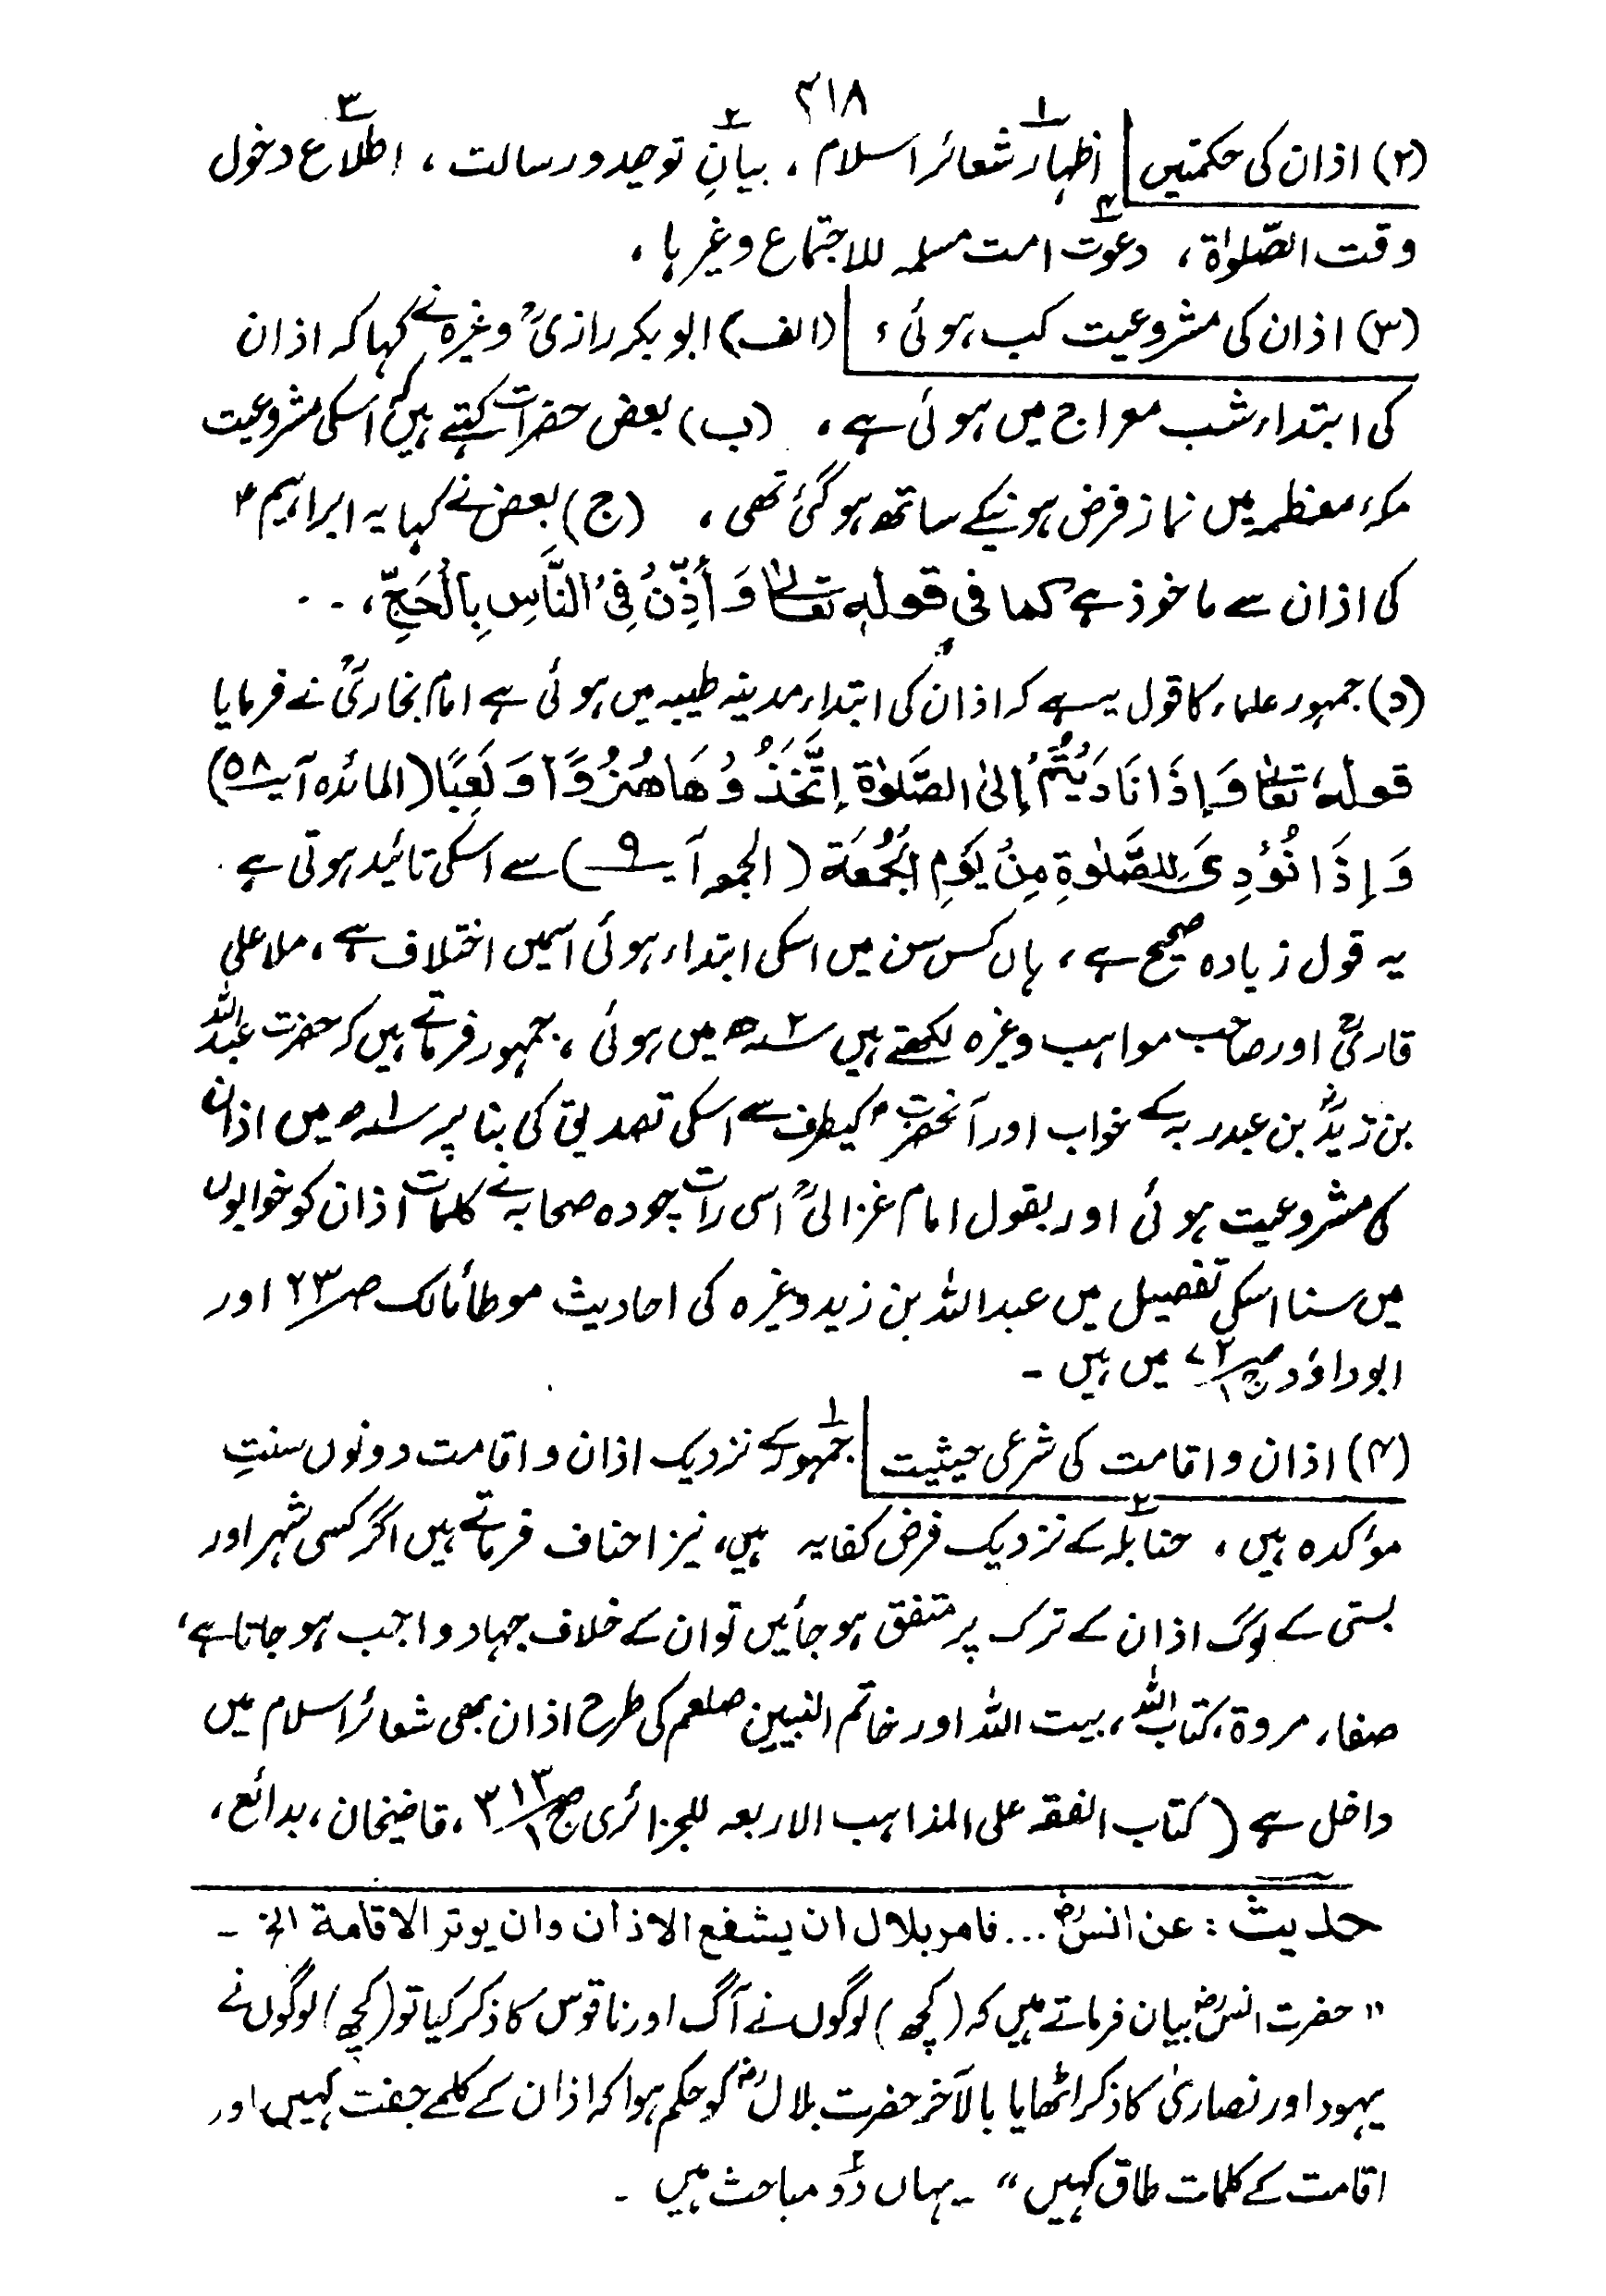 ۴۱۸
(۲) اذان کی حکمتیں | ۱ اظہار شعائر اسلام ، ۲ بیانِ توحید ورسالت ، ۳ اطلاع دخول
وقت الصّلوٰۃ ، ۴ دعوت امت مسلمہ للاجتماع وغیرہا ،
(۳) اذان کی مشروعیت کب ہوئی ؟ | (الف) ابو بکر رازیؒ وغیرہ نے کہا کہ اذان
کی ابتداء شب معراج میں ہوئی ہے ، (ب) بعض حضرات کہتے ہیں کہ اسکی مشروعیت
مکہ معظمہ میں نماز فرض ہونیکے ساتھ ہوگئی تھی ، (ج) بعض نے کہا یہ ابراہیم ؑ
کی اذان سے ماخوذ ہے کما فی قولہٖ تعالیٰ وَ أَذِّنْ فِی النَّاسِ بِالْحَجِّ ، ۔ ۔
(د) جمہور علماء کا قول یہ ہے کہ اذان کی ابتداء مدینہ طیبہ میں ہوئی ہے امام بخاریؒ نے فرمایا
قولہٗ تعالیٰ وَ إِذَا نَادَیْتُمْ إِلیٰ الصَّلَوٰۃِ إتَّخَذُوْهَا هُزُوًا وَ لَعِبًا (المائدہ آیت ۵۸)
وَ إِذَا نُوْدِیَ لِلصَّلٰوۃِ مِنْ یَوْمِ الْجُمُعَة ( الجمعہ آیت ۹ ) سے اسکی تائید ہوتی ہے ۔
یہ قول زیادہ صحیح ہے ، ہاں کس سن میں اسکی ابتداء ہوئی اسمیں اختلاف ہے ، ملا علی
قاریؒ اور صاحب مواہب وغیرہ لکھتے ہیں ۲ سنہ ھ میں ہوئی ، جمہور فرماتے ہیں کہ حضرت عبداللہ
بن زیدؓ بن عبدربہ کے خواب اور آنحضرت ؐ کیطرف سے اسکی تصدیق کی بنا پر ۱ سنہ ھ میں اذان
کی مشروعیت ہوئی اور بقول امام غزالیؒ اسی رات چودہ صحابہ نے کلمات اذان کو خوابوں
میں سنا اسکی تفصیل میں عبد اللہ بن زید وغیرہ کی احادیث موطأ مالک صـ۲۳ اور
ابوداؤد صـ۷۲ ج۱ میں ہیں ۔
(۴) اذان واقامت کی شرعی حیثیت | ۱ جمہور کے نزدیک اذان واقامت دونوں سنتِ
مؤکدہ ہیں ، ۲ حنابلہ کے نزدیک فرض کفایہ ہیں ، نیز احناف فرماتے ہیں اگر کسی شہر اور
بستی کے لوگ اذان کے ترک پر متفق ہوجائیں تو ان کے خلاف جہاد واجب ہوجاتا ہے ،
صفا، مروۃ ، کتاب اللہ ، بیت اللہ اور خاتم النبیین صلعم کی طرح اذان بھی شعائر اسلام میں
داخل ہے ( کتاب الفقہ علی المذاہب الاربعہ للجزائری صـ۳۱۳ ج۱ ، قاضیخان ، بدائع ،
حدیث : عن انسؓ ... فامر بلال ان یشفع الاذان وان یوتر الاقامة الخ ۔
" حضرت انسؓ بیان فرماتے ہیں کہ (کچھ) لوگوں نے آگ اور ناقوس کا ذکر کیا تو (کچھ) لوگوں نے
یہود اور نصاریٰ کا ذکر اٹھایا بالآخر حضرت بلالؓ کو حکم ہوا کہ اذان کے کلمے جفت کہیں اور
اقامت کے کلمات طاق کہیں " ۔ یہاں دو۲ مباحث ہیں ۔